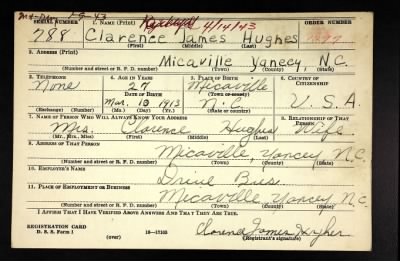 SERIAL NUMBER 1. NAME (Print) 4/14/43 ORDER NUMBER
788 Clarence James Hughes
(First) (Middle) (Last)
3. ADDRESS (Print)
Micaville Yancey, N.C.
(Number and street or R. F. D. number) (Town) (County) (State)
3. TELEPHONE 4. AGE IN YEARS 5. PLACE OF BIRTH 6. COUNTRY OF CITIZENSHIP
None 27 Micaville
DATE OF BIRTH (Town or county)
Mar. 10 1913 N.C. U.S.A.
(Exchange) (Number) (Mo.) (Day) (Yr.) (State or country)
7. NAME OF PERSON WHO WILL ALWAYS KNOW YOUR ADDRESS 8. RELATIONSHIP OF THAT PERSON
Mrs. Clarence Hughes Wife
(Mr., Mrs., Miss) (First) (Middle) (Last)
9. ADDRESS OF THAT PERSON
Micaville, Yancey N.C.
(Number and street or R. F. D. number) (Town) (County) (State)
10. EMPLOYER'S NAME
11. PLACE OF EMPLOYMENT OR BUSINESS
Micaville, Yancey N.C.
(Number and street or R. F. D. number) (Town) (County) (State)
I AFFIRM THAT I HAVE VERIFIED ABOVE ANSWERS AND THAT THEY ARE TRUE.
REGISTRATION CARD
D. S. S. Form 1 (over) 16-17105 Clarence James Hughes
(Registrant's signature)